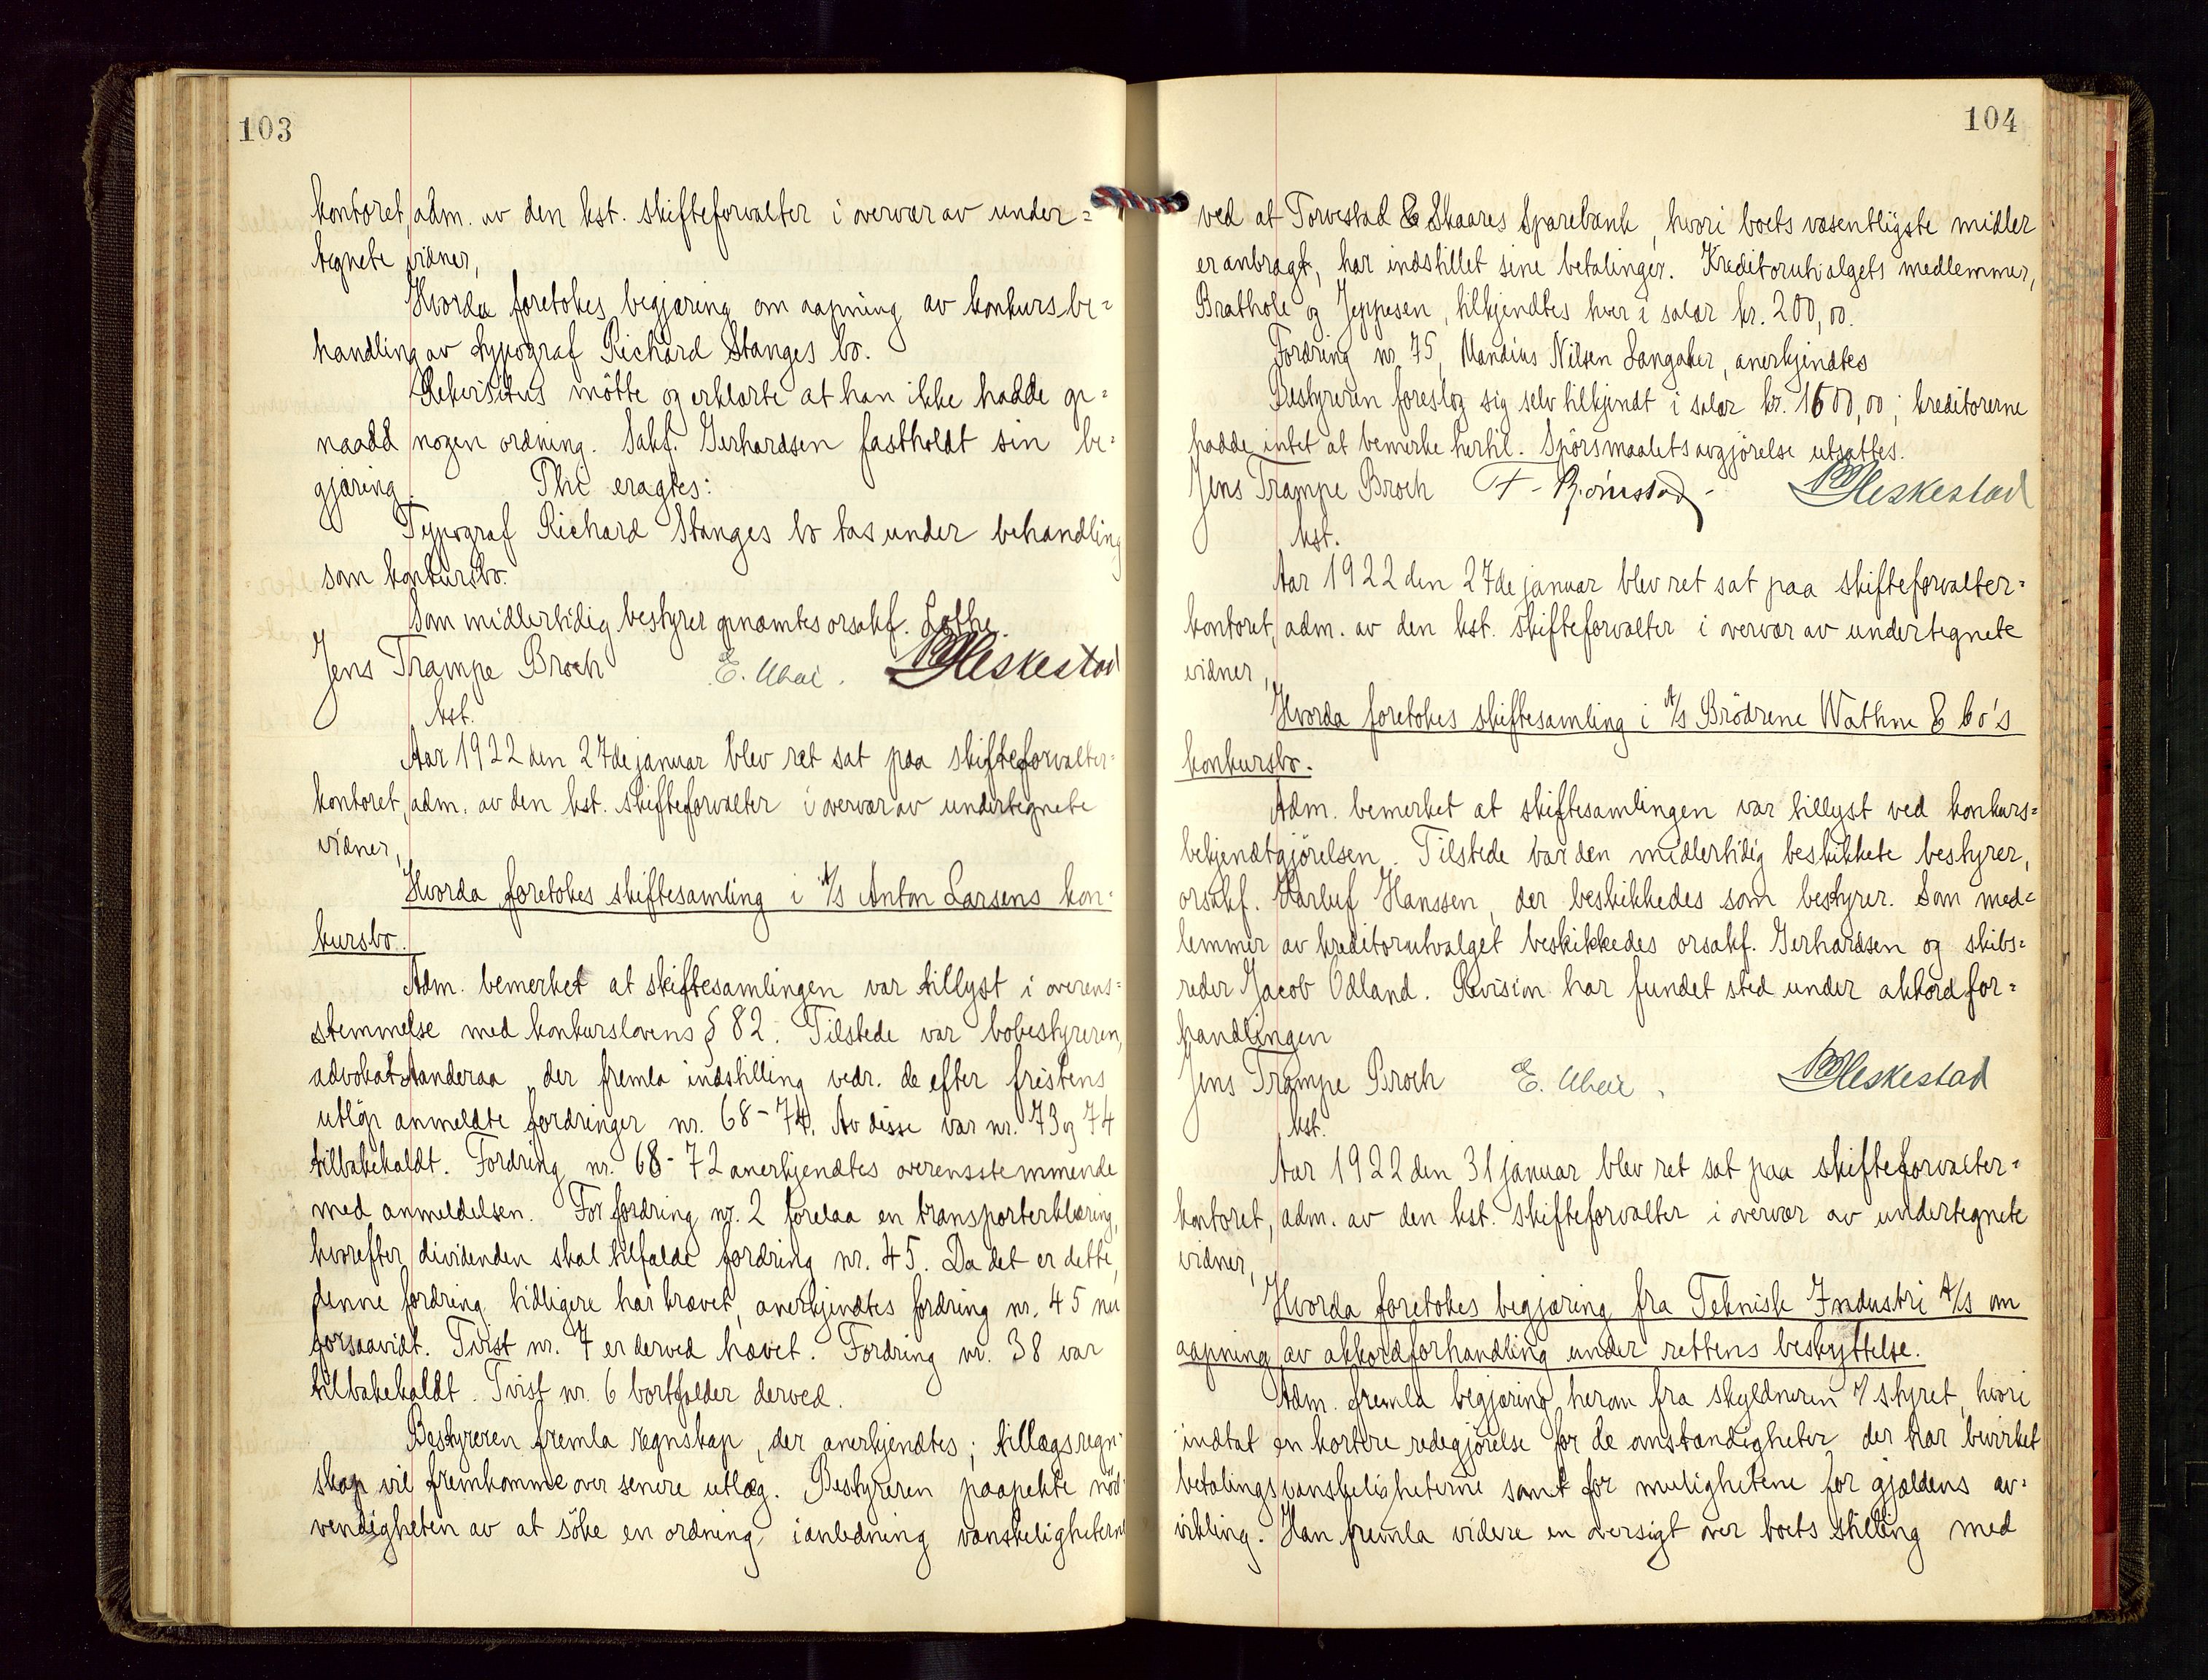 103
kontoret, adm. av den kst. skifteforvalter i overvær av under=
tegnete vidner,
Hvorda foretokes begjæring om aapning av konkursbe=
handling av typograf Richard Stanges bo.
Rekvisitus mötte og erklærte at han ikke hadde op=
naadd nogen ordning. Sakf. Gerhardsen fastholdt sin be=
gjæring. Thi eragtes:
Typograf Richard Stanges bo tas under behandling
som konkursbo.
Som midlertidig bestyrer opnævntes orsakf. Lothe.
Jens Trampe Broch E. Ubøe. Heskestad
kst.
Aar 1922 den 27de januar blev ret sat paa skifteforvalter=
kontoret, adm. av den kst. skifteforvalter i overvær av undertegnete
vidner,
Hvorda foretokes skiftesamling i A/S Anton Larsens kon=
kursbo.
Adm. bemerket at skiftesamlingen var tillyst i overens=
stemmelse med konkurslovens § 82. Tilstede var bobestyreren,
advokat Aanderaa, der fremla indstilling vedr. de efter fristens
utlöp anmeldte fordringer nr. 68-74. Av disse var nr. 73 og 74
tilbakekaldt. Fordring nr. 68-72 anerkjendtes overensstemmende
med anmeldelsen. For fordring nr. 2 forelaa en transporterklæring,
hvorefter dividenden skal tilfalde fordring nr. 45. Da det er dette,
denne fordring tidligere har krævet, anerkjendtes fordring nr. 45 nu
forsaavidt. Tvist nr. 7 er derved hævet. Fordring nr. 38 var
tilbakekaldt. Tvist nr. 6 bortfalder derved.
Bestyreren fremla regnskap, der anerkjendtes; tillægsregn=
skap vil fremkomme over senere utlæg. Bestyreren paapekte nöd=
vendigheten av at söke en ordning i anledning vanskeligheterne
104
ved at Torvestad & Skaares Sparebank, hvori boets væsentligste midler
er anbragt, har indstillet sine betalinger. Kreditorutvalgets medlemmer,
Brathole og Jeppesen, tilkjendtes hver i salær kr. 200,00.
Fordring nr. 75, Mandius Nilsen Langaker, anerkjendtes
Bestyreren foreslog sig selv tilkjendt i salær kr. 1600,00; kreditorerne
hadde intet at bemerke hertil. Spörsmaalets avgjörelse utsattes.
Jens Trampe Broch F. Bjørnstad Heskestad
kst.
Aar 1922 den 27de januar blev ret sat paa skifteforvalter=
kontoret, adm. av den kst. skifteforvalter i overvær av undertegnete
vidner,
Hvorda foretokes skiftesamling i A/S Brödrene Wathne & Co's
konkursbo.
Adm. bemerket at skiftesamlingen var tillyst ved konkurs=
bekjendtgjörelsen. Tilstede var den midlertidig beskikkete bestyrer,
orsakf. Karluf Hanssen, der beskikkedes som bestyrer. Som med=
lemmer av kreditorutvalget beskikkedes orsakf. Gerhardsen og skibs=
reder Jacob Odland. Revision har fundet sted under akkordfor=
handlingen
Jens Trampe Broch E. Ubøe. Heskestad
kst.
Aar 1922 den 31 januar blev ret sat paa skifteforvalter=
kontoret, adm. av den kst. skifteforvalter i overvær av undertegnete
vidner,
Hvorda foretokes begjæring fra Teknisk Industri A/S om
aapning av akkordforhandling under rettens beskyttelse.
Adm. fremla begjæring herom fra skyldneren v/ styret, hvori
indtat en kortere redegjörelse for de omstændigheter der har bevirket
betalingsvanskeligheterne samt for mulighetene for gjældens av=
vikling. Han fremla videre en oversigt over boets stilling med